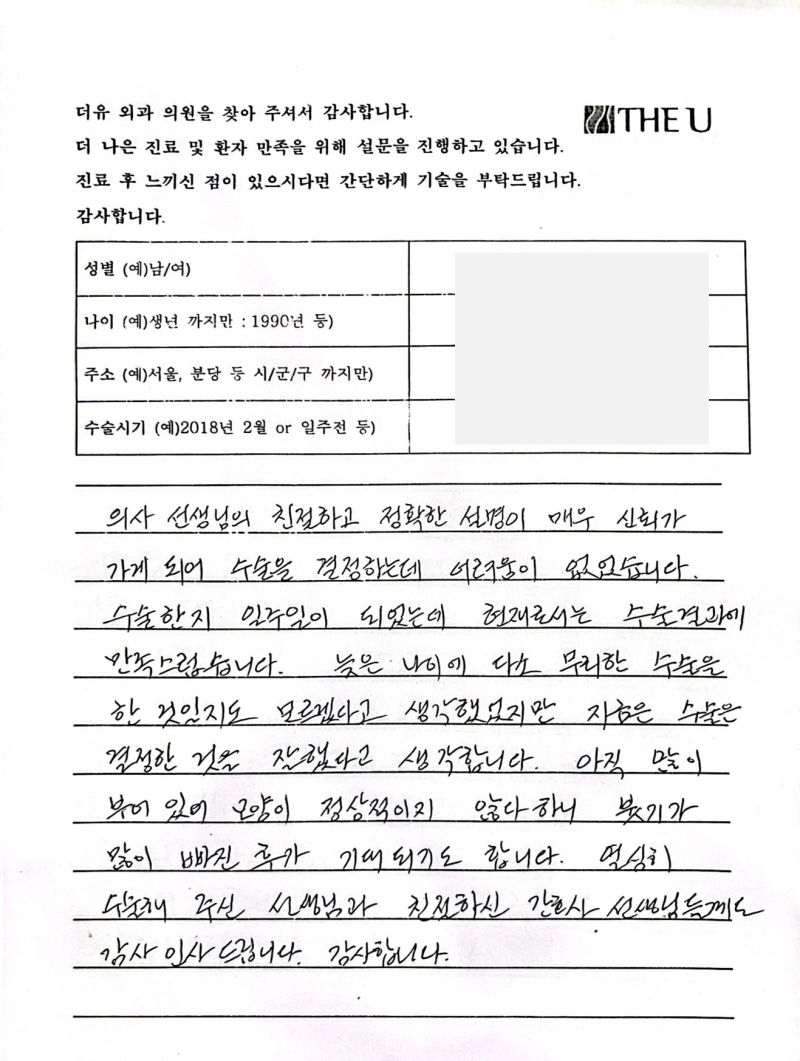 더유 외과 의원을 찾아 주셔서 감사합니다.
THE U
더 나은 진료 및 환자 만족을 위해 설문을 진행하고 있습니다.
진료 후 느끼신 점이 있으시다면 간단하게 기술을 부탁드립니다.
감사합니다.
성별 (예)남/여)
나이 (예)생년 까지만 : 1990년 등)
주소 (예)서울, 분당 등 시/군/구 까지만)
수술시기 (예)2018년 2월 or 일주전 등)
의사 선생님의 친절하고 정확한 설명이 매우 신뢰가
가게 되어 수술을 결정하는데 어려움이 없었습니다.
수술한지 일주일이 되었는데 현재로서는 수술결과에
만족스럽습니다. 늦은 나이에 다소 무리한 수술을
한 것일지도 모르겠다고 생각했었지만 지금은 수술은
결정한 것을 잘했다고 생각합니다. 아직 많이
부어 있어 모양이 정상적이지 않다하니 붓기가
많이 빠진 후가 기대되기도 합니다. 열심히
수술해 주신 선생님과 친절하신 간호사 선생님들께도
감사 인사 드립니다. 감사합니다.